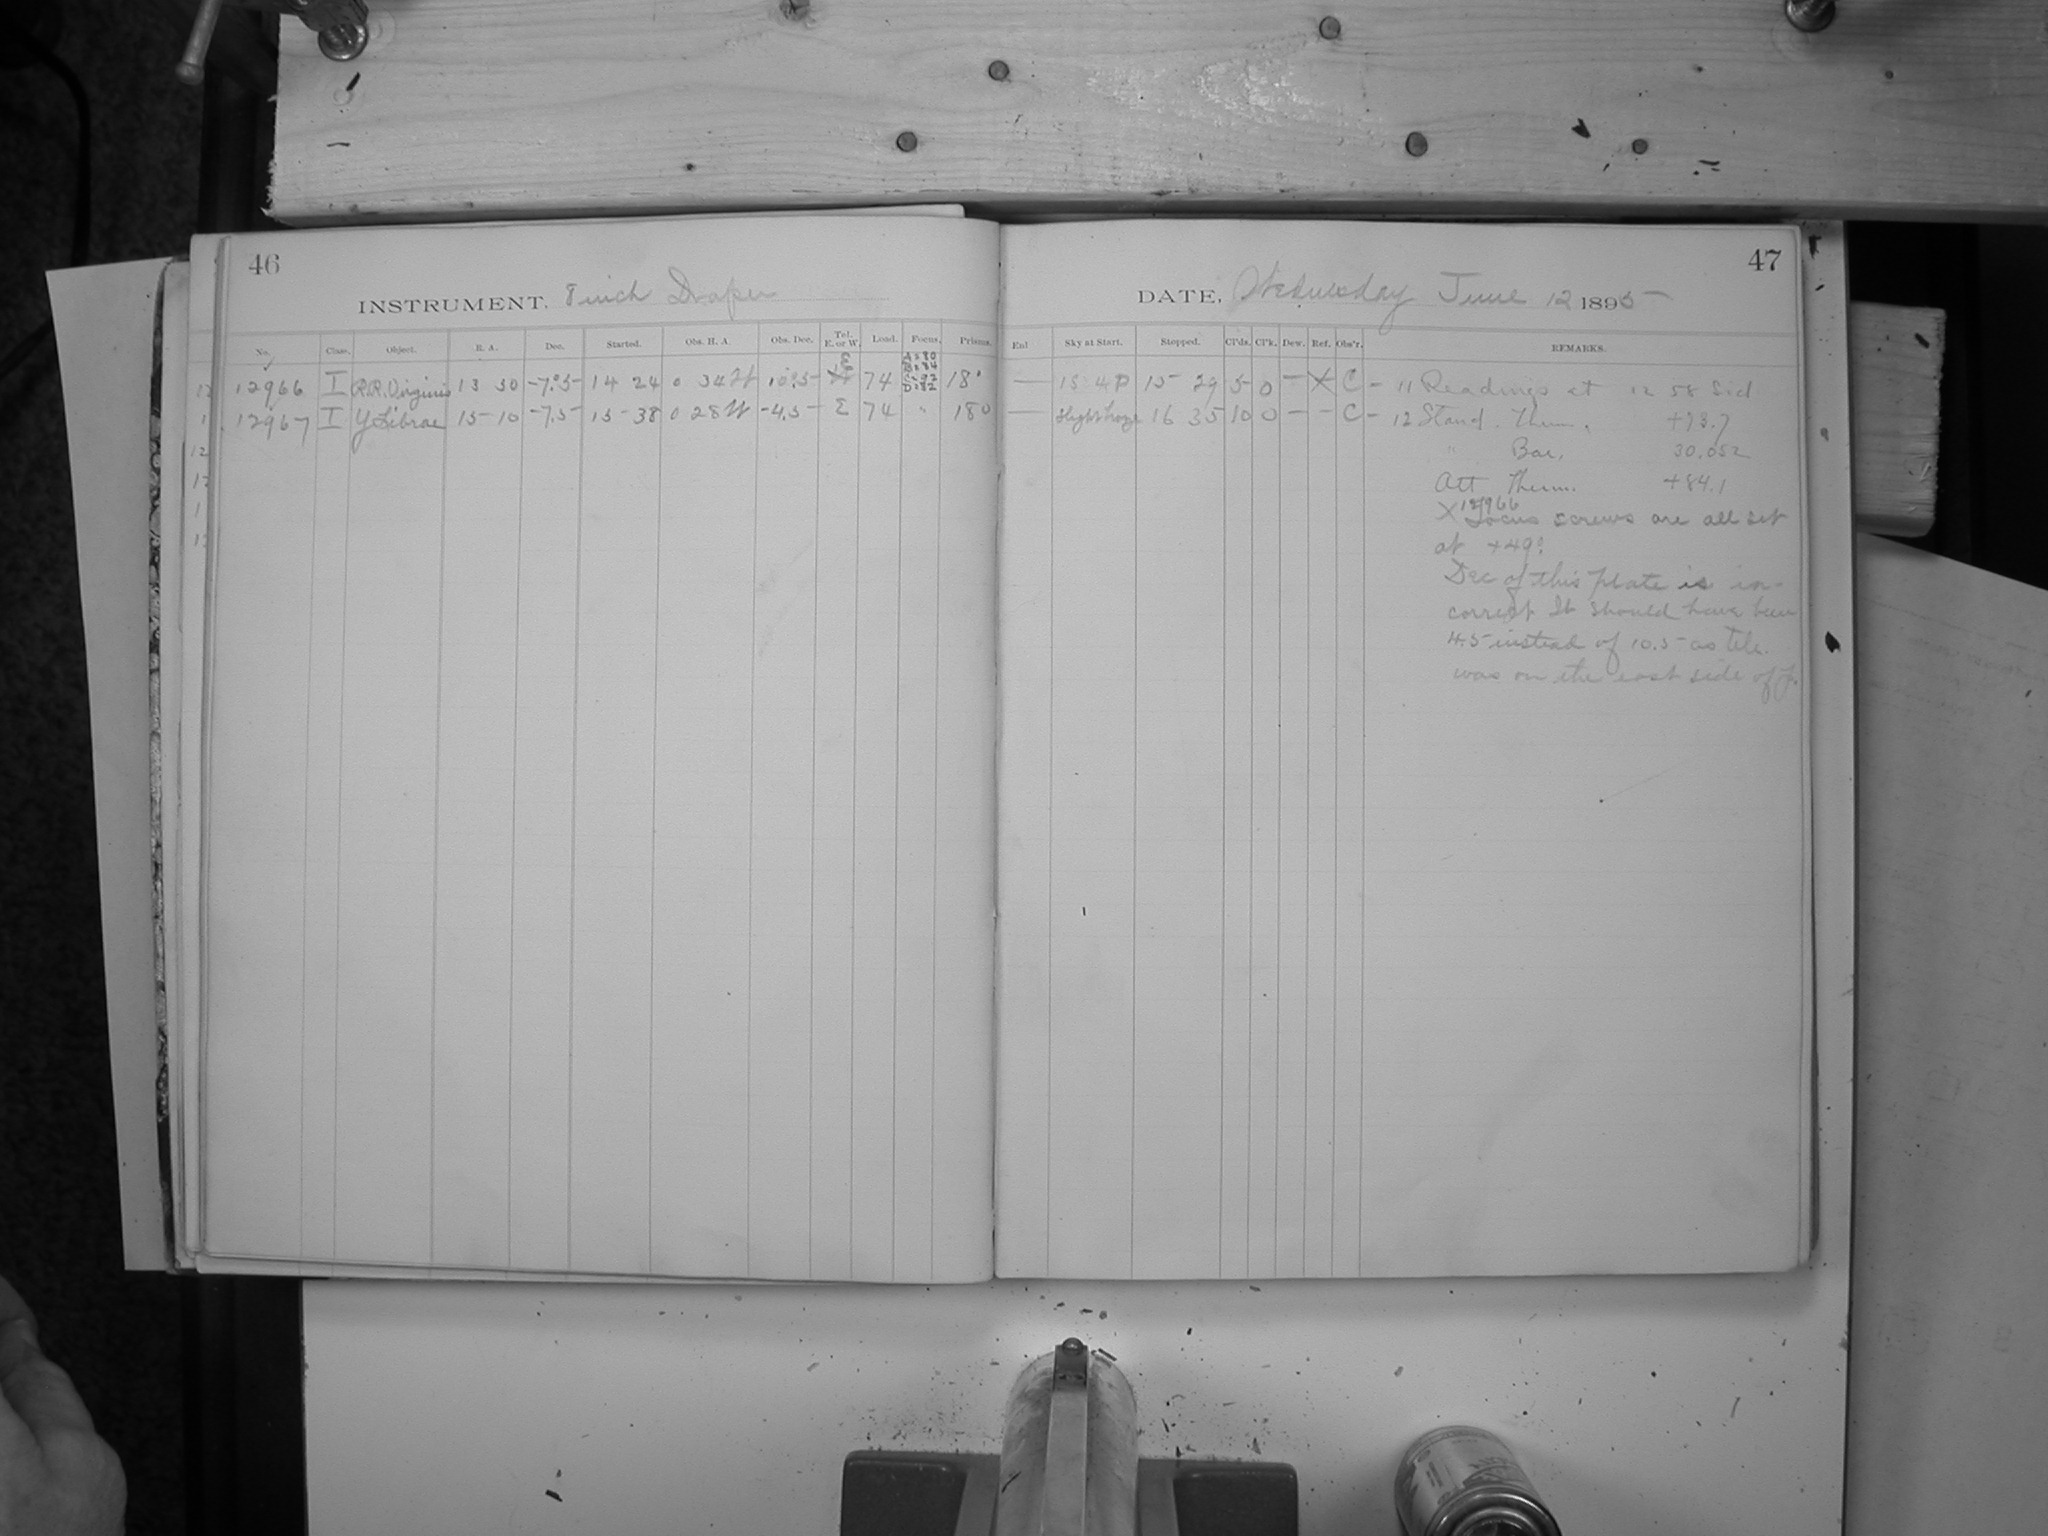 46
INSTRUMENT, 8 inch Draper
No. Class. Object. R. A. Dec. Started. Obs. H. A. Obs. Dec. Tel. E. or W. Load. Focus. Prisms.
12966 I R.R. Virginis 13 30 -7.°5 14 24 0 34 W 10.°5 E 74 A=80 B=84 C=92 D=82 18°
12967 I Y Librae 15 10 -7.5 15 38 0 28 W -4.5 E 74 " 180
47
DATE, Wednesday June 12 1895
Enl Sky at Start. Stopped. Cl'ds. Cl'k. Dew. Ref. Obs'r. REMARKS.
— 15 29 5 0 — X C - 11 Readings at 12 58 Sid
— Slight haze 16 35 10 0 — — C - 12 Stand. Therm.
" Bar. 30.052
Att Therm. +84.1
X 12966 Focus screws are all set
at +49?
Dec of this plate is in-
correct It should have been
4.5 instead of 10.5 as tele.
was on the east side of